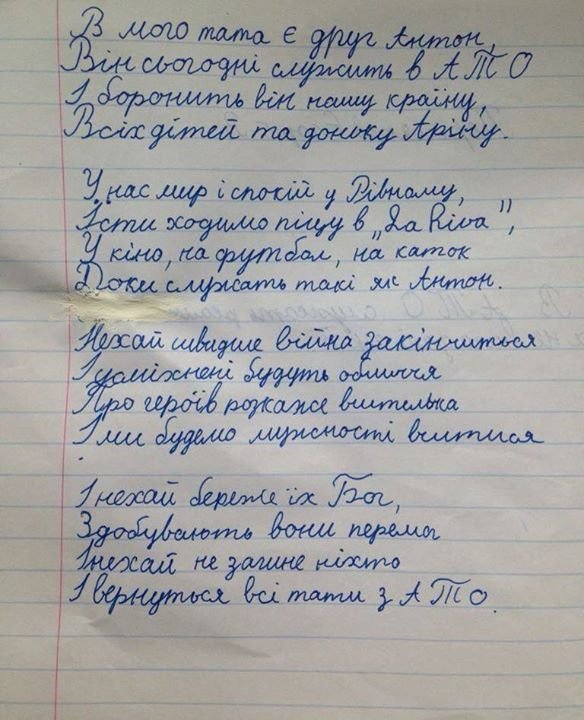 В мого тата є друг Антон,
Він сьогодні служить в АТО
І боронить він нашу країну,
Всіх дітей та доньку Аріну.
У нас мир і спокій у Рівному,
Їсти ходимо піцу в „La Riva",
У кіно, на футбол, на каток
Доки служать такі як Антон.
Нехай швидше війна закінчиться
І усміхнені будуть обличчя
Про героїв розкаже вчителька
І ми будемо мужності вчитися
І нехай береже їх Бог,
Здобувають вони перемог
І нехай не загине ніхто
І вернуться всі тати з АТО.